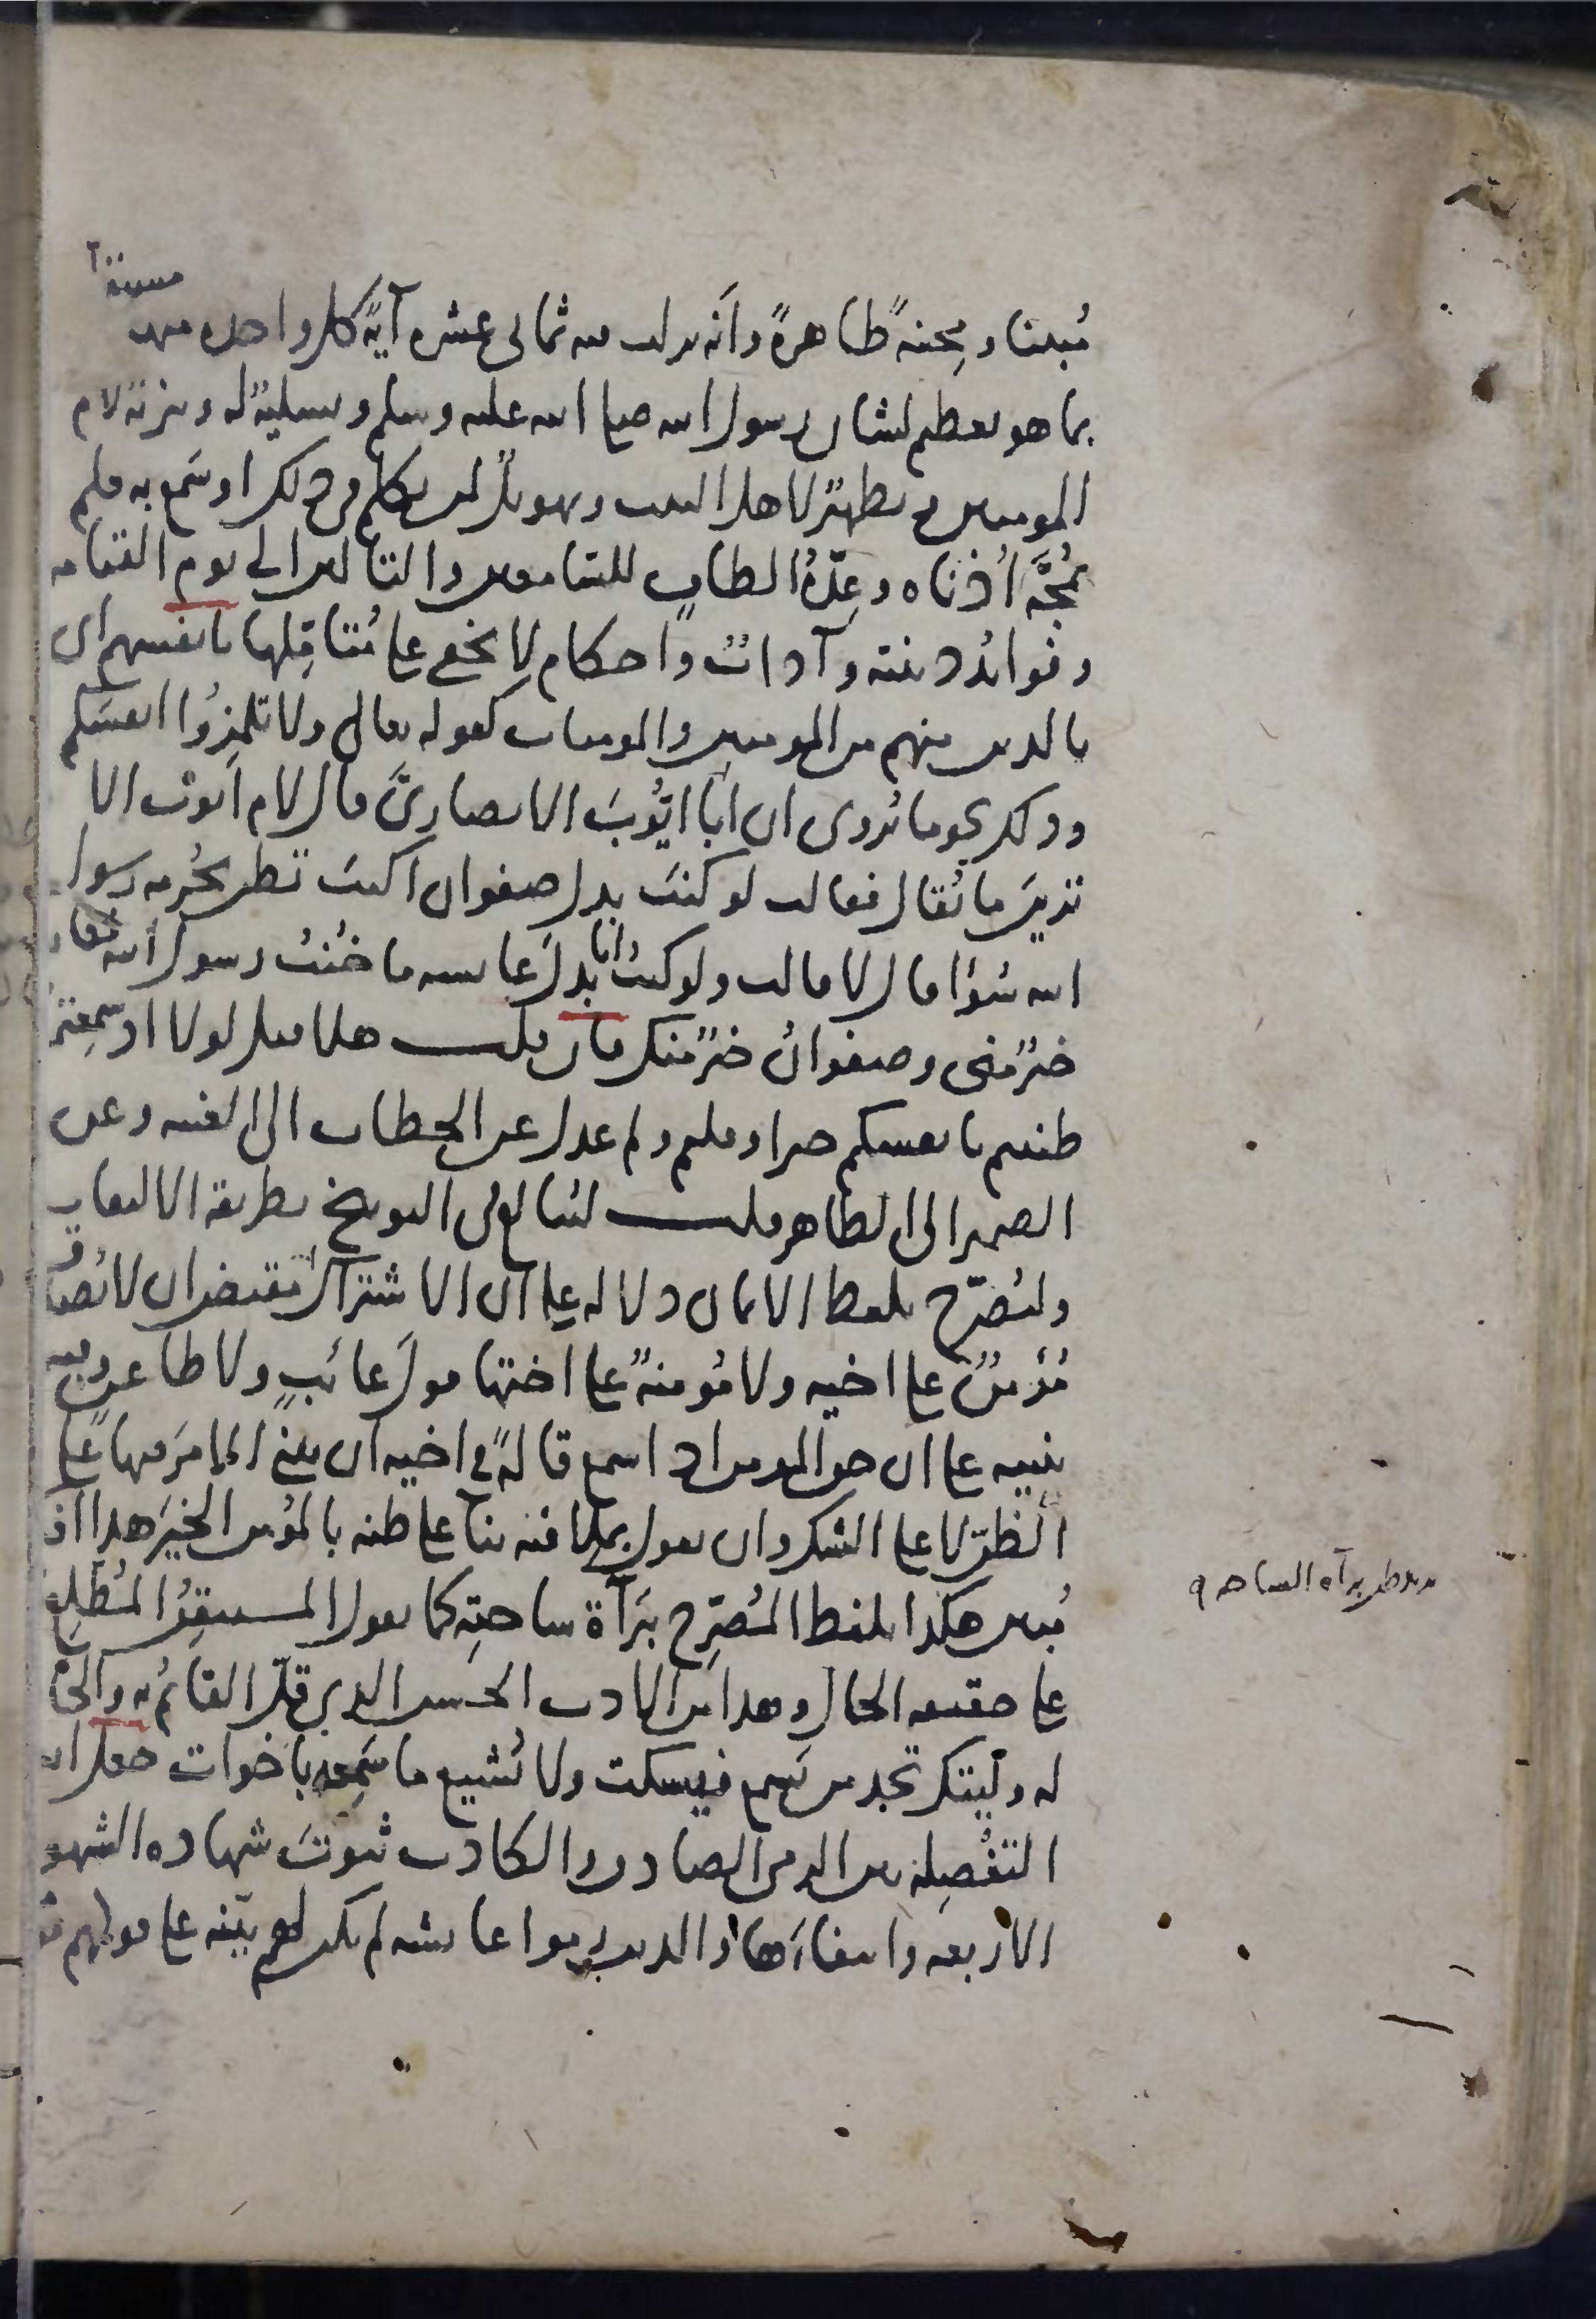 مستقلة
مُبينًا ومِحنةً ظاهرةً وأنه نزلت فيه ثماني عشرة آيةً كل واحدة منها
بما هو تعظيم لشان رسول الله صلى الله عليه وسلم وتسليةٌ له وتنزيه لام
المومنين وتطهيرٌ لاهل البيت وتهويلٌ لمن تكلم في ذلك او سَمع به فلم
تمجَّه اُذناه وعِدّةُ الطاف للسّامعين والتالين الى يوم القيامه
وفوائدُ دينية وآدابٌ واحكام لا يخفى على مُتناقِلها بانفسهم اى
بالدين منهم من المومنين والمومنات كقوله تعالى ولا تلمِزُوا انفسَكم
وذلك نحو ما يُروى ان ابا ايّوبَ الانصارىَّ قال لام ايوبَ الا
تَرينَ ما يُقال فقالت لو كنتَ بدل صفوان اكنتَ تظن بحُرمه رسول
الله سُوءًا قال لا قالت ولو كنتُ انا بدلَ عايشه ما خُنتُ رسول الله فعا
خيرٌ منى وصفوانُ خيرٌ منك فان قلت هلا قيل لولا اذ سمِعتموُ
ظننتم بانفسكم خيرا وقلتم ولم عدل عن الخطاب الى الغيبه وعن
الضمير الى الظاهر قلت ليُبالغ فى التوبيخ بطريقه الالتفات
وليُصرّح بلفظ الايمان دلاله على ان الاشتراك مقتضٍ ان لا يُصدق
مُؤمنٌ على اخيه ولا مُومنةٌ على اختها قولَ عائبٍ ولا طاعنٍ وفيه
تنبيه على ان حق المومن اذا سمع قالةً فى اخيه ان يبنىَ الامرَ فيها على
الظنّ لا على الشك وان يقول بملا فيه بناءً على ظنه بالمُؤمن الخيرَ هذا افك
مُبين هكذا بلفظ المُصرِّح ببَرآءة ساحتِه كما يقول المستيقِنُ المُطّلِع
على حقيقه الحال وهذا من الادب الحسن الذى قلّ القائمُ به والحافظ
له وليتك تجد من يَسمع فيسكت ولا يُشيع ما سَمِعه باخوات جعل الله
التفصِلة بين الرمى الصادق والكاذب ثبوتَ شهاده الشهود
الاربعه وانتفاءَها والذين رموا عايشه لم يكن لهم بيّنه على قولهم
براءه الساحه